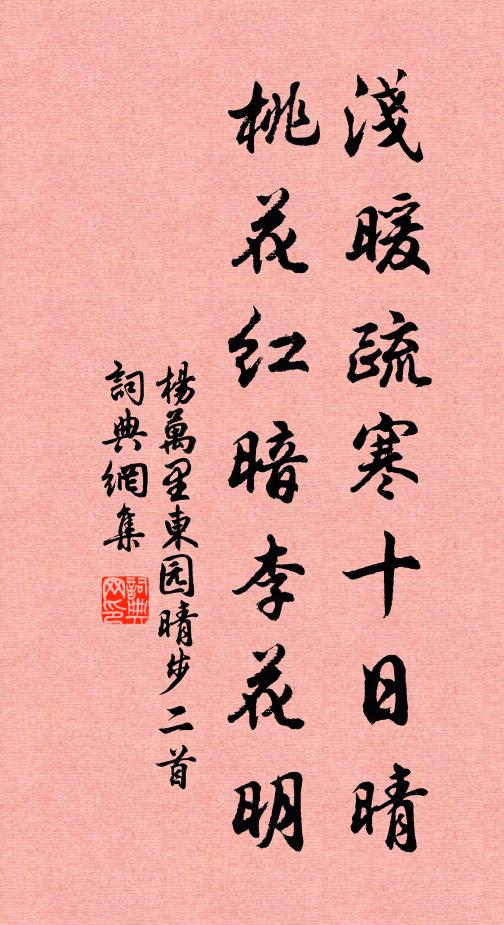 淺暖疏寒十日晴
桃花紅暗李花明
楊萬里東园晴步二首
詞典網集
詞典
网印